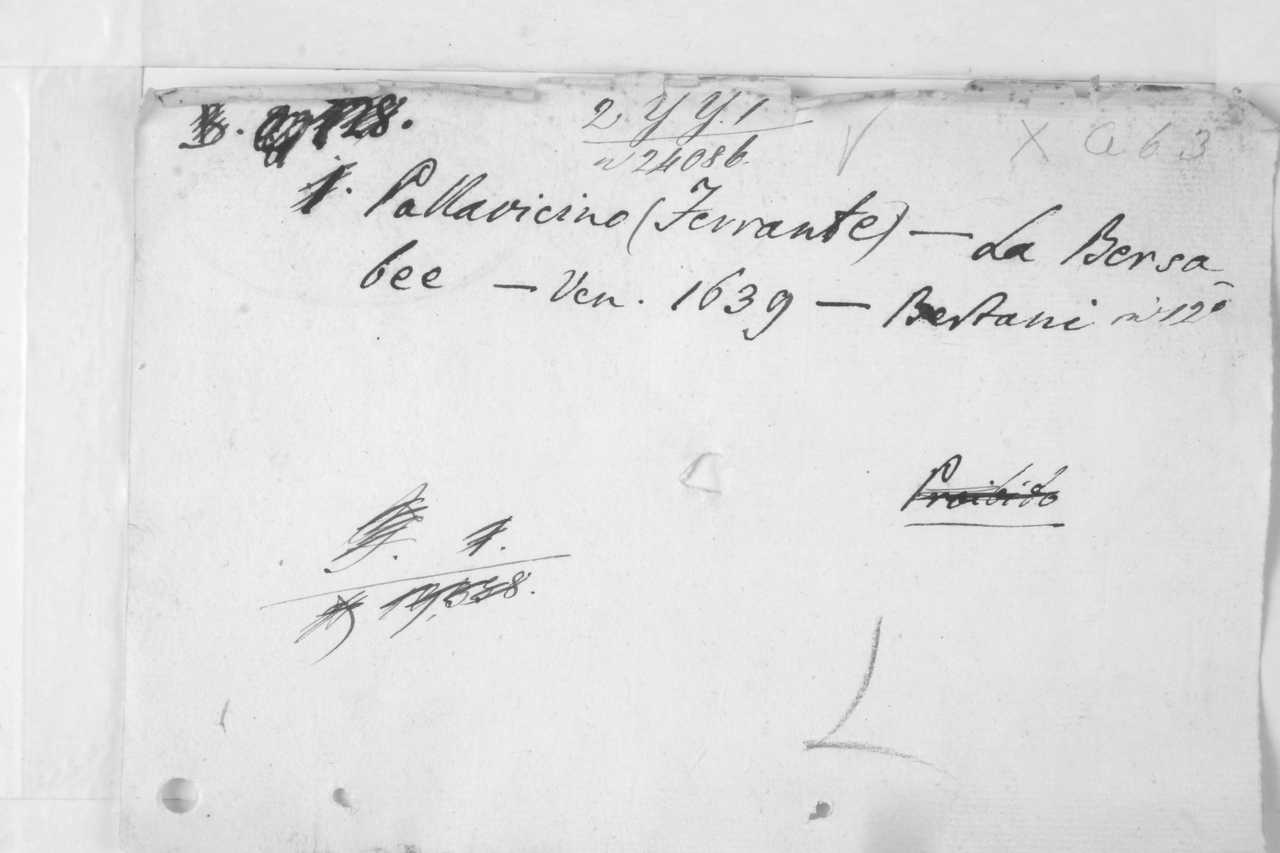 2. Y Y. 1
n 24086.
X a 63
1. Pallavicino (Ferrante) — La Bersa-
bee — Ven. 1639 — Bertani in 12°
Proibito
1.
L